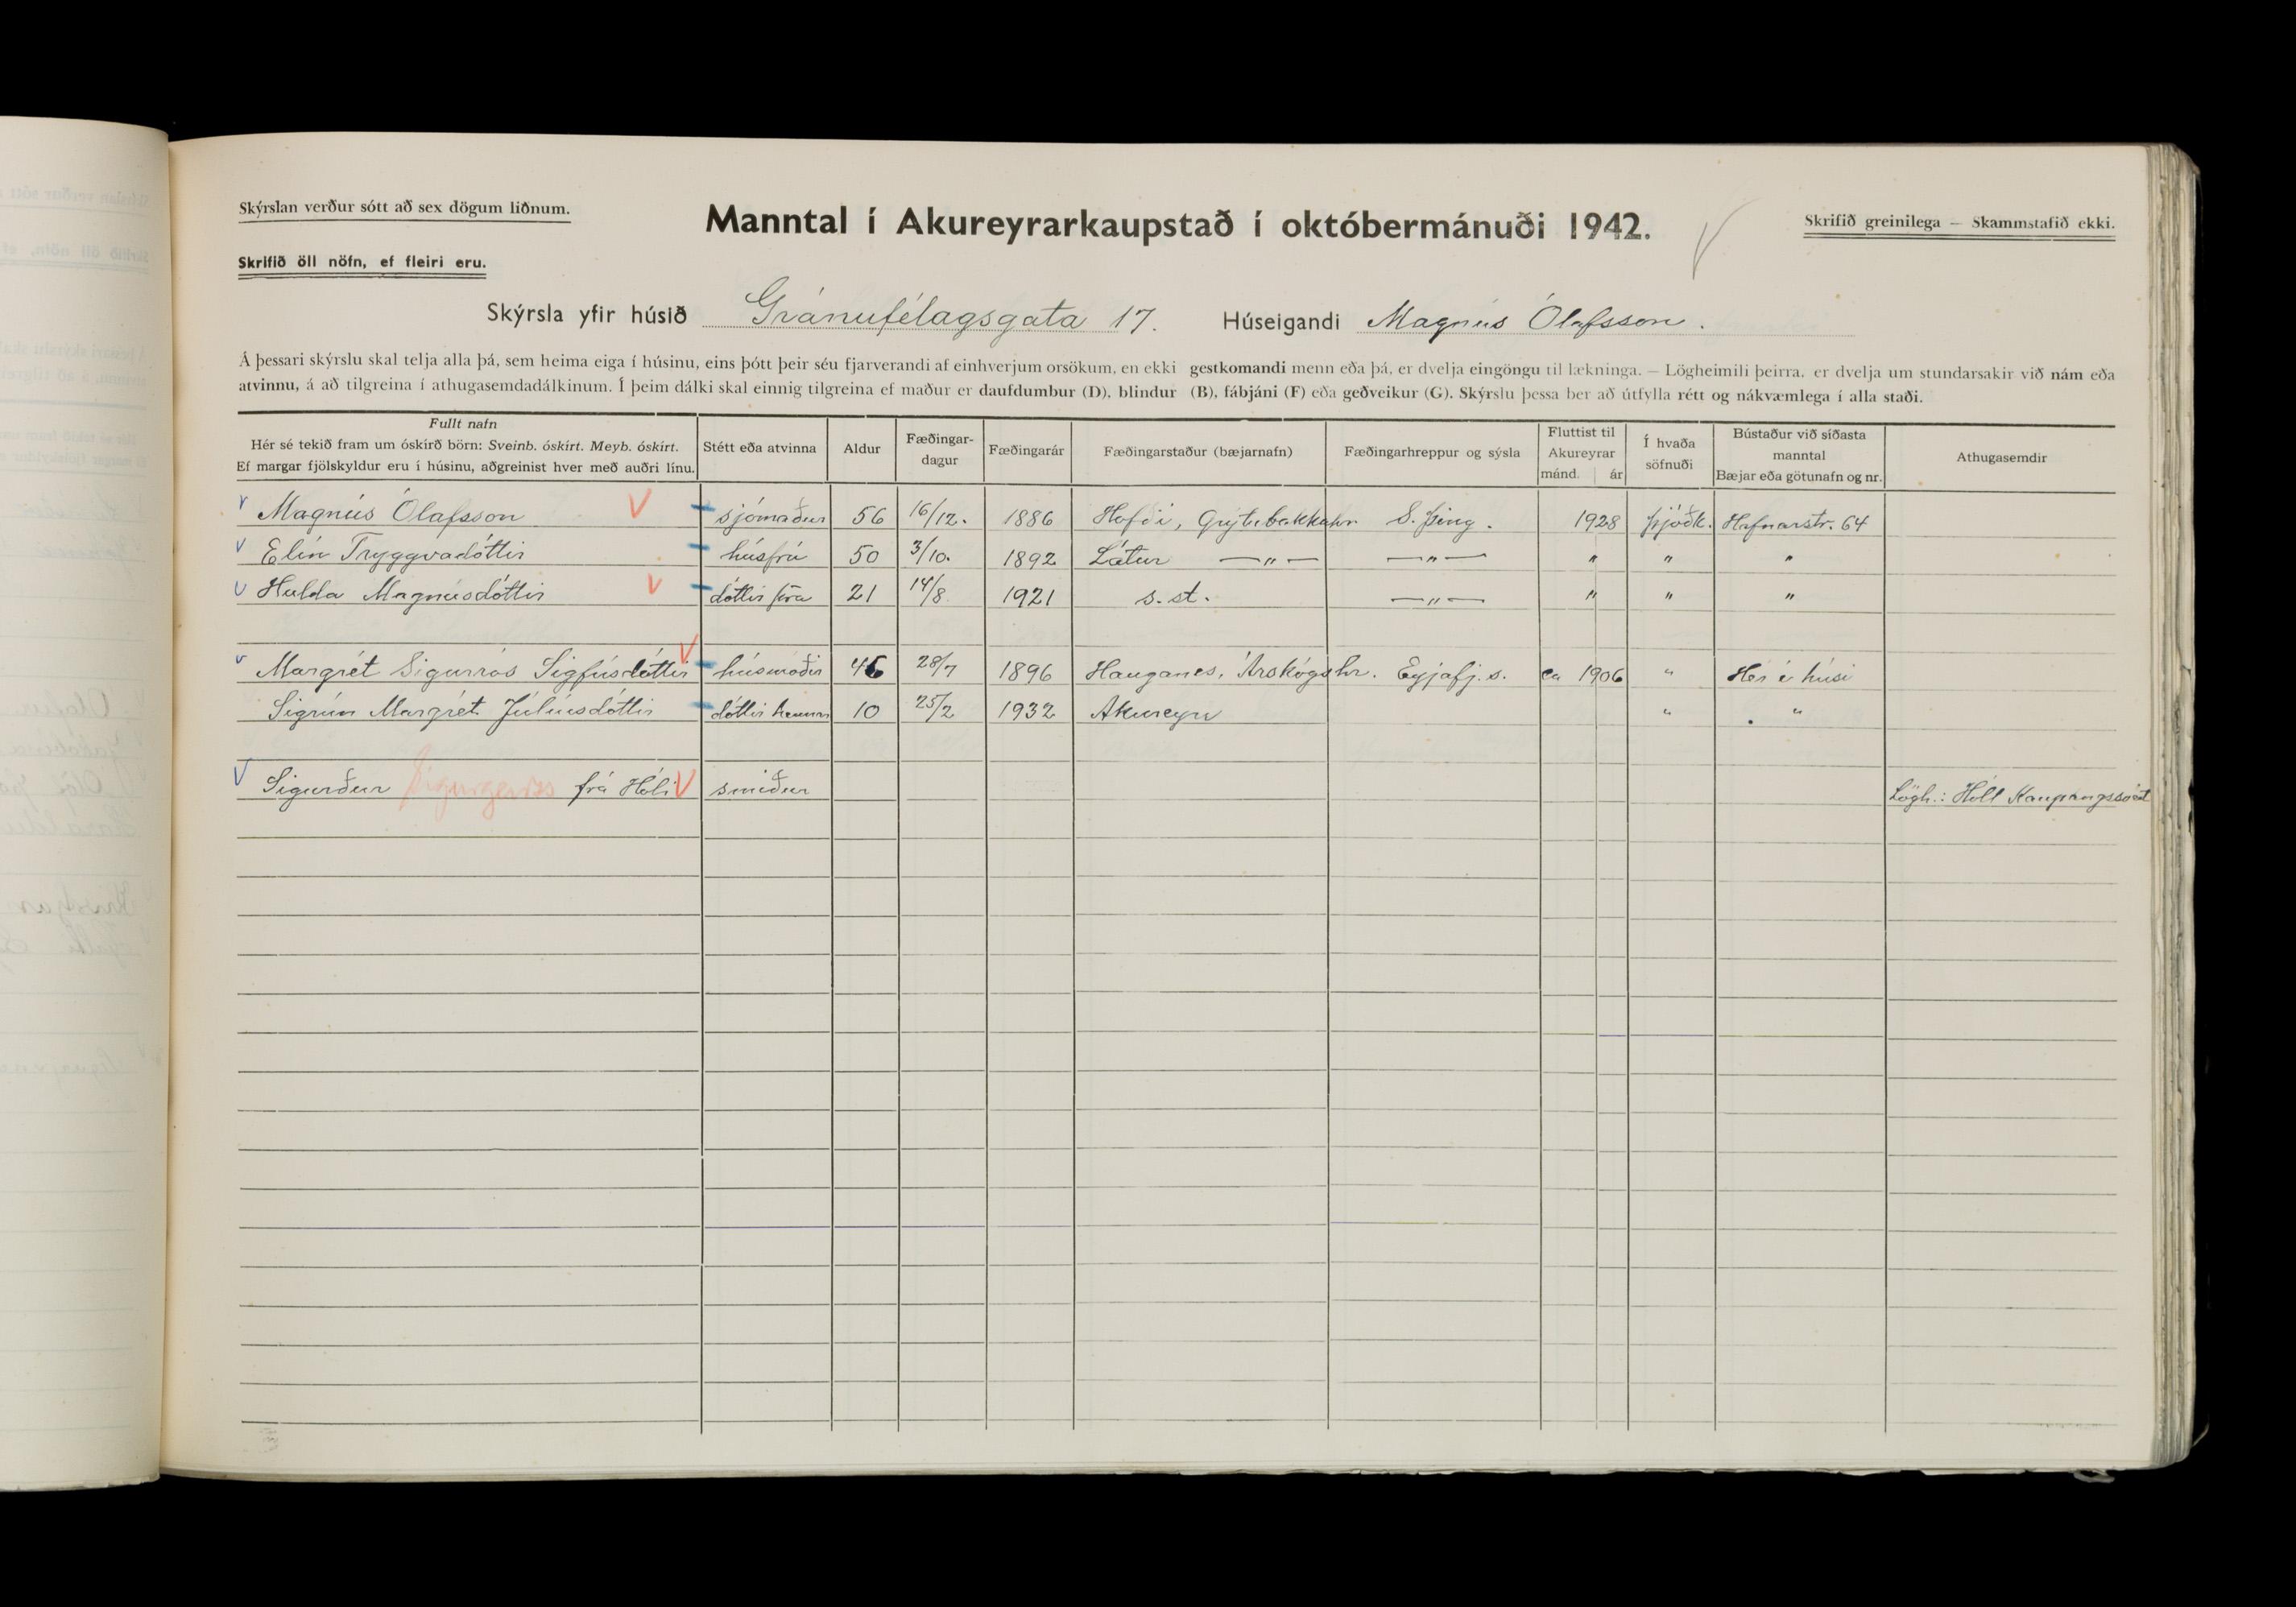 Skýrslan verður sótt að sex dögum liðnum.
Manntal í Akureyrarkaupstað í októbermánuði 1942.
Skrifið greinilega — Skammstafið ekki.
Skrifið öll nöfn, ef fleiri eru.
Skýrsla yfir húsið Gránufélagsgata 17. Húseigandi Magnús Ólafsson.
Á þessari skýrslu skal telja alla þá, sem heima eiga í húsinu, eins þótt þeir séu fjarverandi af einhverjum orsökum, en ekki gestkomandi menn eða þá, er dvelja eingöngu til lækninga. — Lögheimili þeirra, er dvelja um stundarsakir við nám eða
atvinnu, á að tilgreina í athugasemdadálkinum. Í þeim dálki skal einnig tilgreina ef maður er daufdumbur (D), blindur (B), fábjáni (F) eða geðveikur (G). Skýrslu þessa ber að útfylla rétt og nákvæmlega í alla staði.
Fullt nafn
Hér sé tekið fram um óskírð börn: Sveinb. óskírt. Meyb. óskírt.
Ef margar fjölskyldur eru í húsinu, aðgreinist hver með auðri línu.
Stétt eða atvinna
Aldur
Fæðingar-
dagur
Fæðingarár
Fæðingarstaður (bæjarnafn)
Fæðingarhreppur og sýsla
Fluttist til
Akureyrar
mánd. ár
Í hvaða
söfnuði
Bústaður við síðasta
manntal
Bæjar eða götunafn og nr.
Athugasemdir
V Magnús Ólafsson V sjómaður 56 16/12. 1886 Hofði, Grýtubakkahr S. Þing. 1928 þjóðk. Hafnarstr. 64
V Elín Tryggvadóttir húsfrú 50 3/10. 1892 Látur —"— —"— " " "
V Hulda Magnúsdóttir V dóttir þra 21 14/8. 1921 s. st. —"— " " "
V Margrét Sigurrós Sigfúsdóttir V húsmóðir 46 28/7 1896 Hauganes, Árskógshr. Eyjafj. s. ca 1906 " Hér í húsi
Sigrún Margrét Júlíusdóttir dóttir hennar 10 25/2 1932 Akureyri " "
V Sigurður Sigurgeirss frá Hóli V smiður Lögh.: Hóll Kaupangssveit